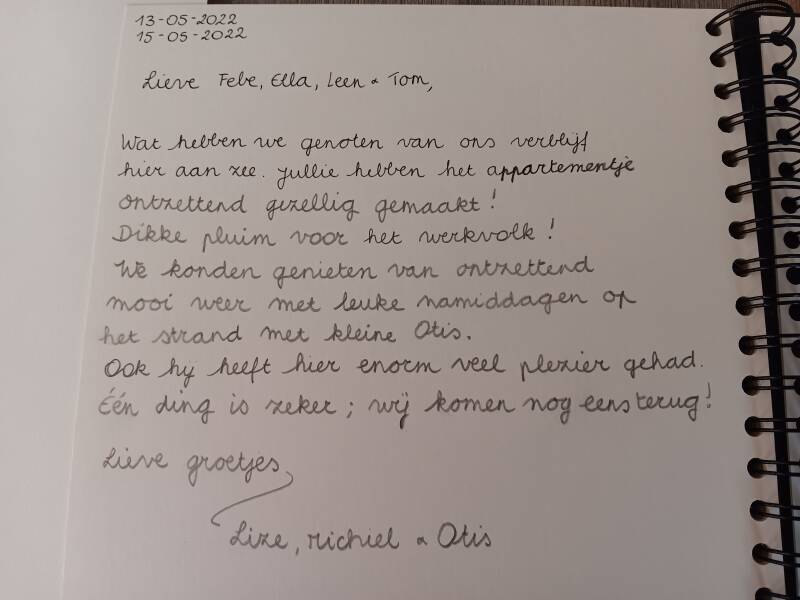 13-05-2022
15-05-2022
Lieve Febe, Ella, Leen & Tom,
Wat hebben we genoten van ons verblijf
hier aan zee. Jullie hebben het appartementje
ontzettend gezellig gemaakt!
Dikke pluim voor het werkvolk!
We konden genieten van ontzettend
mooi weer met leuke namiddagen op
het strand met kleine Otis.
Ook hij heeft hier enorm veel plezier gehad.
Één ding is zeker; wij komen nog eens terug!
Lieve groetjes
Lize, Michiel & Otis